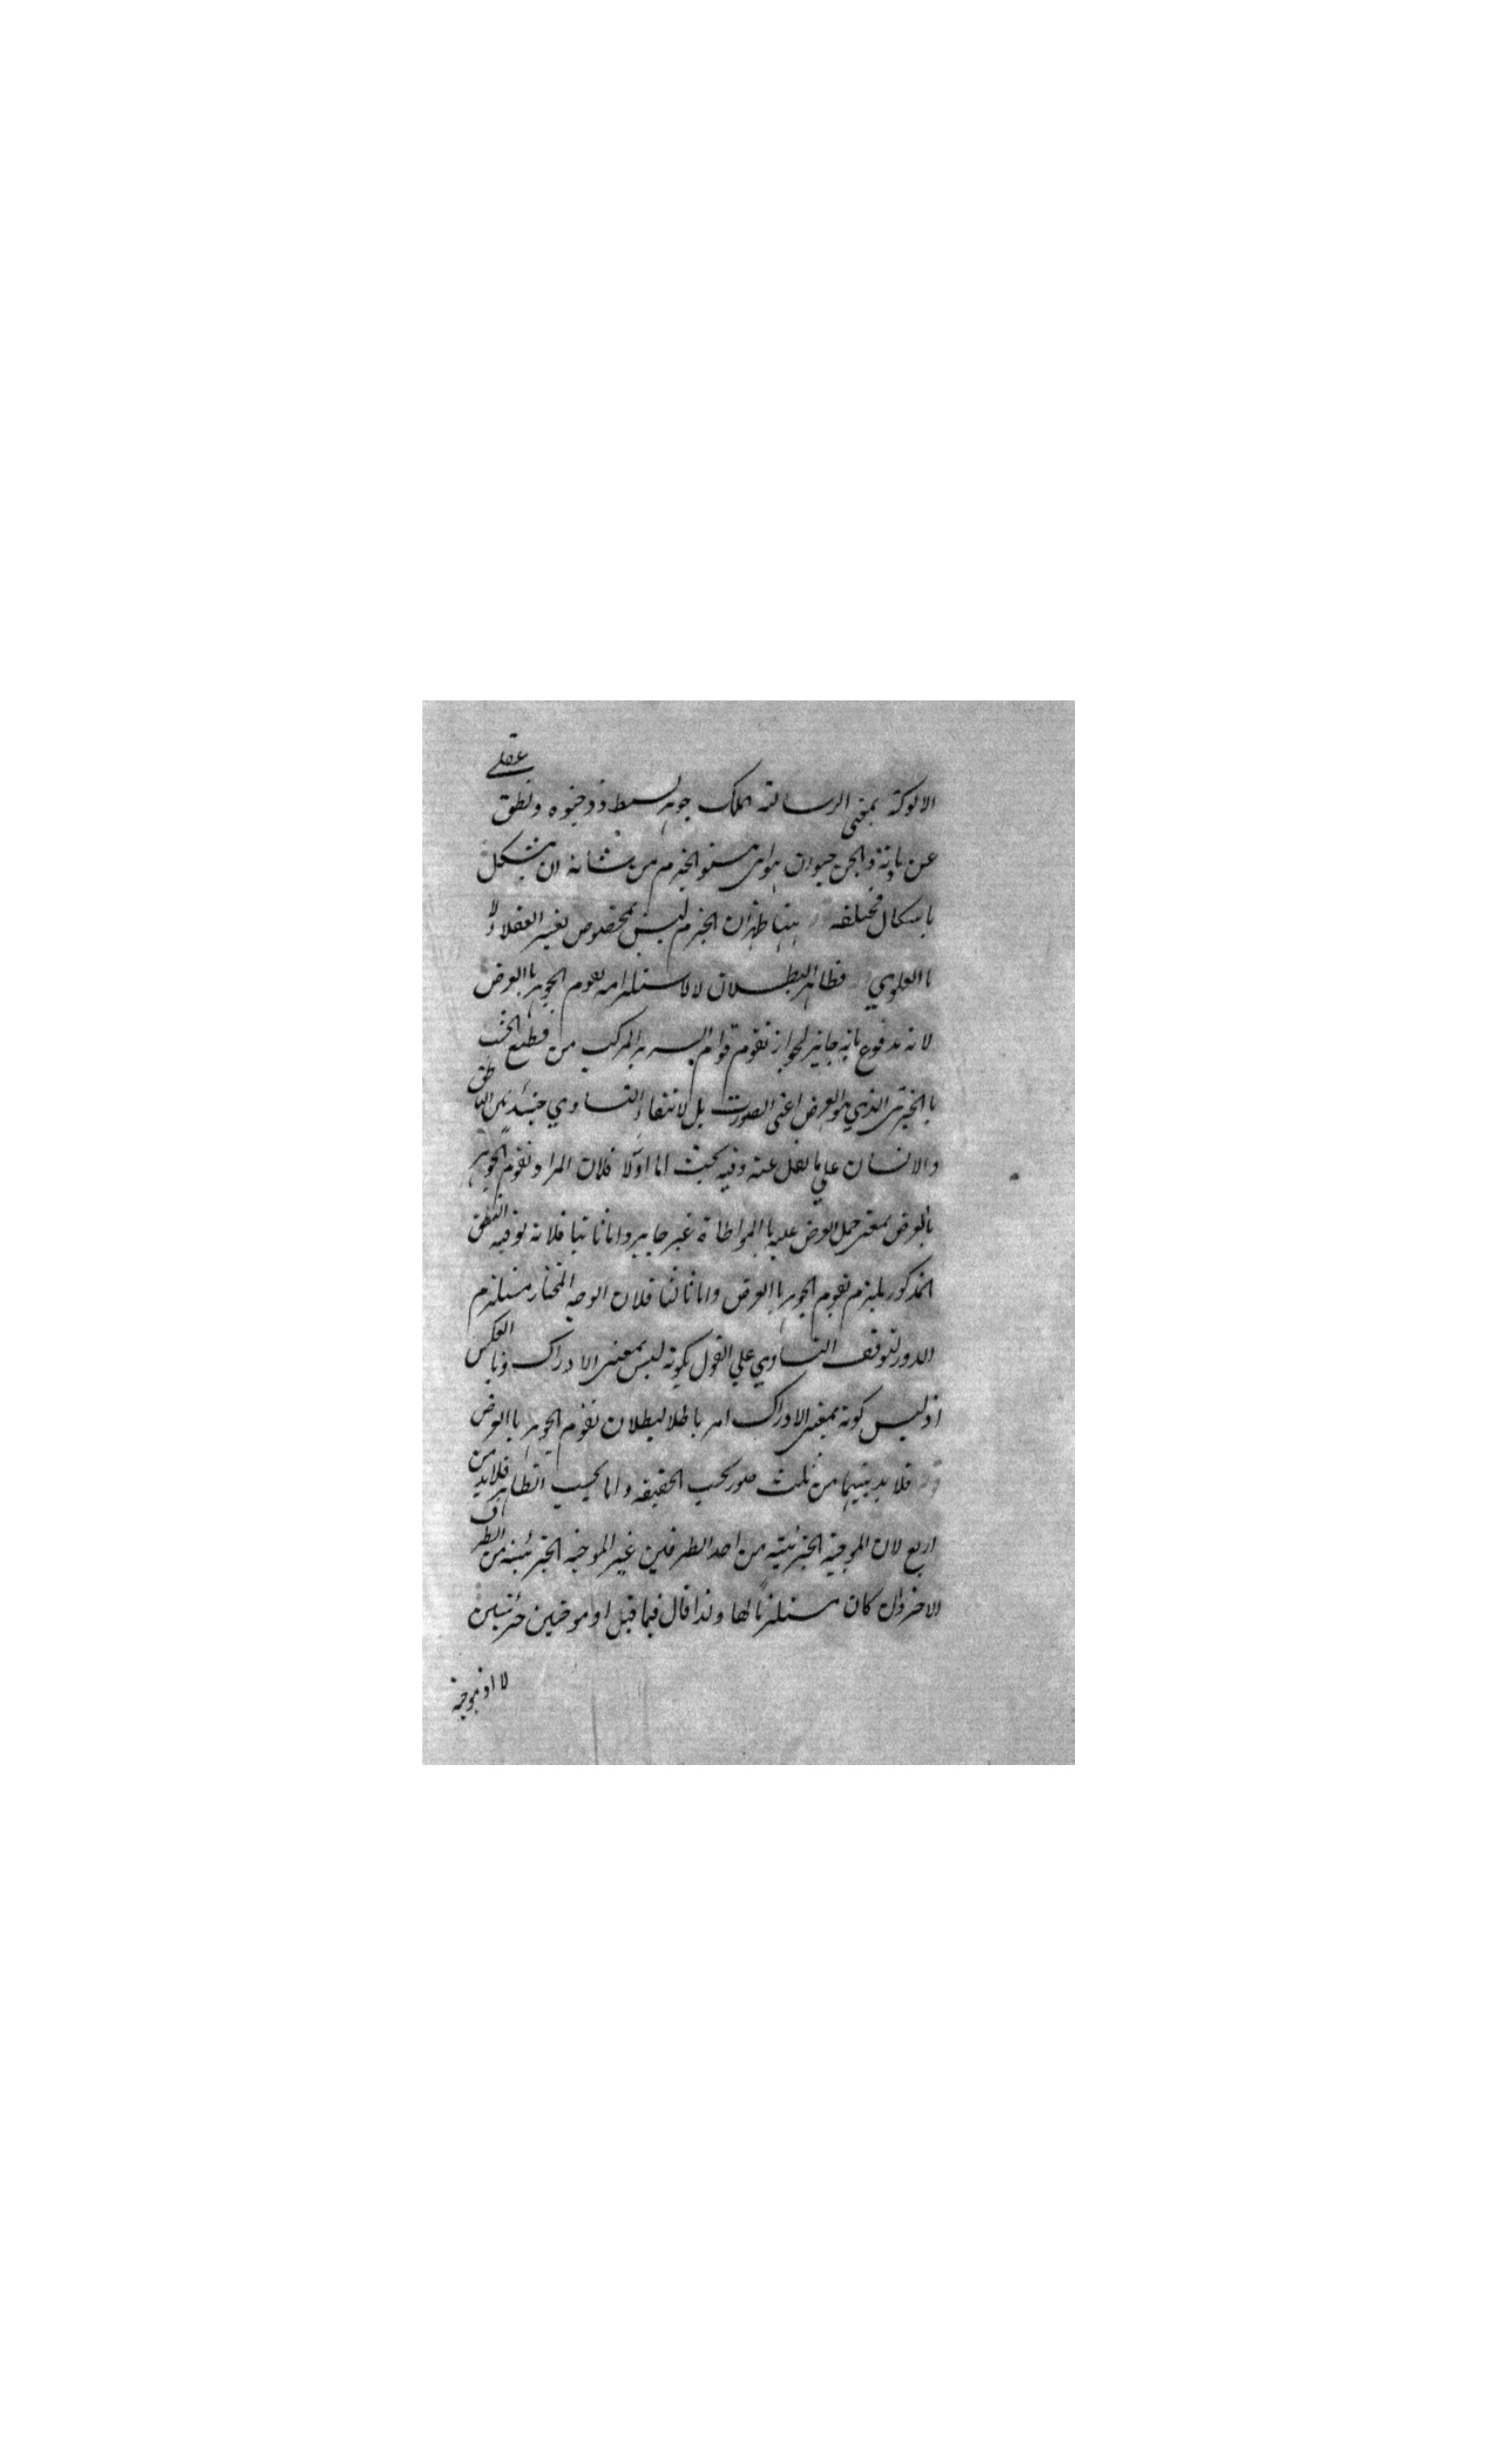 الالوكة بمعنى الرسالة الملك جوهر بسيط ذو حيوه ونطق عقلي
عن مادية والجن حيوان هوائي من شانه ان يتشكل
باشكال مختلفه هنا ظهر ان الجرم ليس بمخصوص بغير العقلا ولا
باالعلوي فظاهر البطلان لا لاستلزامه تقوم الجوهر باالعرض
لانه مدفوع بانه جايز لجواز تقوم قوام السرير المركب من قطع الخشب
باالجزئي الذي هو العرض اعنى الصورت بل لانتفاء التساوي حينئذ بين الناطق
والانسان علي ما نقل عنه وفيه بحث اما اولا فلان المراد تقوم الجوهر
بالعرض بمعنى حمل العرض عليه باالمواطاة غير جايز واما ثانيا فلانه توفيه النطق
المذكور يلزم تقوم الجوهر باالعرض واما ثالثا فلان الوجه المختار مستلزم
الدور لتوقف التساوي علي القول بكونه ليس بمعنى الادراك وبا العكس
اذ ليس كونه بمعنى الادراك امر باطلا لبطلان تقوم الجوهر باالعرض
فلا بد بينهما من ثلث صور بحسب الحقيقه واما بحسب الظاهر فلا بد من
اربع لان الموجبة الجزئية من احد الطرفين غير الموجبه الجزئية من الطرف
الاخر وان كان مستلزما لها ولذا قال فيما قبل او موجبتين جزئيتين
لا اذ موجبه